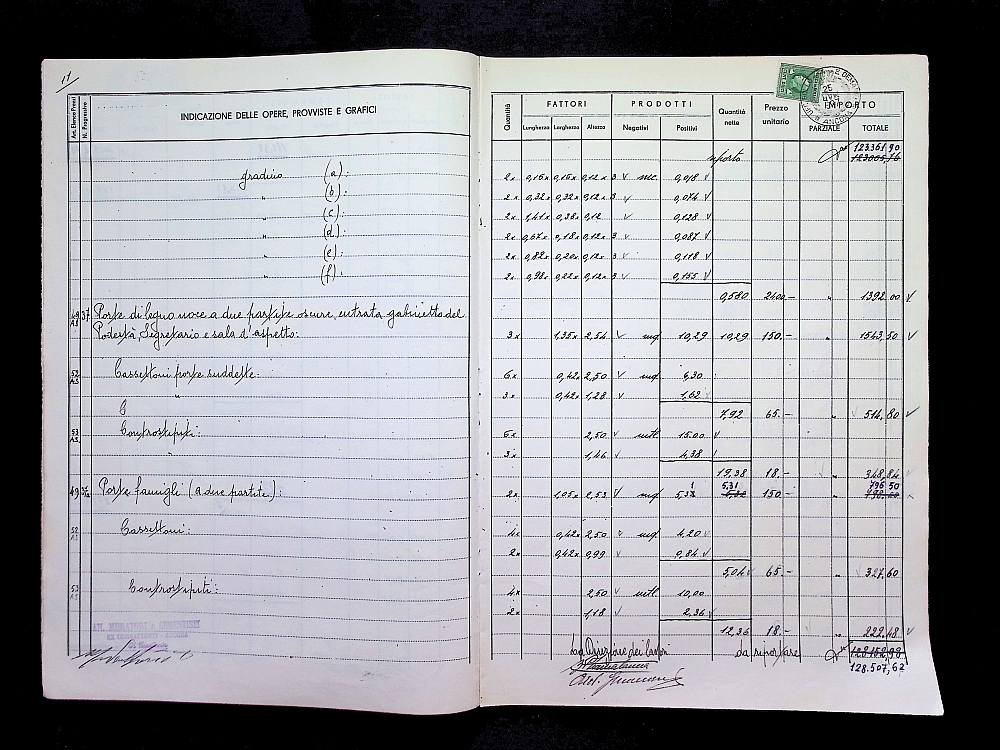 11
Art. Elenco Prezzi
N. Progressivo
INDICAZIONE DELLE OPERE, PROVVISTE E GRAFICI
gradino (a):
" (b):
" (c):
" (d):
" (e):
" (f):
49 A.S. 37 Porte di legno noce a due partite oscure, entrata gabinetto del
Podestà, Segretario e sala d'aspetto:
52 A.S. Cassettoni porte suddette:
"
53 A.S. Controstipiti:
"
49 Porte famigli (a due partite):
52 A.S. Cassettoni:
53 A.S. Controstipiti:
AN. MURATORI e CEMENTISTI
EX COMBATTENTI - ANCONA
Quantità FATTORI PRODOTTI Quantità nette Prezzo unitario IMPORTO
Lunghezza Larghezza Altezza Negativi Positivi PARZIALE TOTALE
riporto 123.361,90
123005,76
2x 0,16x 0,16x 0,12x3 mc. 0,018
2x 0,32x 0,32x 0,12x3 0,074
2x 1,41x 0,38x 0,12 0,128
2x 0,67x 0,18x 0,12x3 0,087
2x 0,82x 0,20x 0,12x3 0,118
2x 0,98x 0,22x 0,12x3 0,155
0,580 2400.- " 1392.00
3x 1,35x 2,54 mq 10,29 10,29 150.- " 1543,50
6x 0,42x 2,50 mq 6,30
3x 0,42x 1,28 1,62
7,92 65.- " 514,80
6x 2,50 mtl 15.00
3x 1,46 4,38
19,38 18.- " 348,84
5,31 796 50
2x 1,05x 2,53 mq 5,31 150.- "
4x 0,42x 2,50 mq 4,20
2x 0,42x 0,99 0,84
5,04 65.- " 327,60
4x 2,50 mtl 10,00
2x 1,18 2,36
12,36 18.- " 222,48
La Direzione dei lavori da riportare
128.507,62